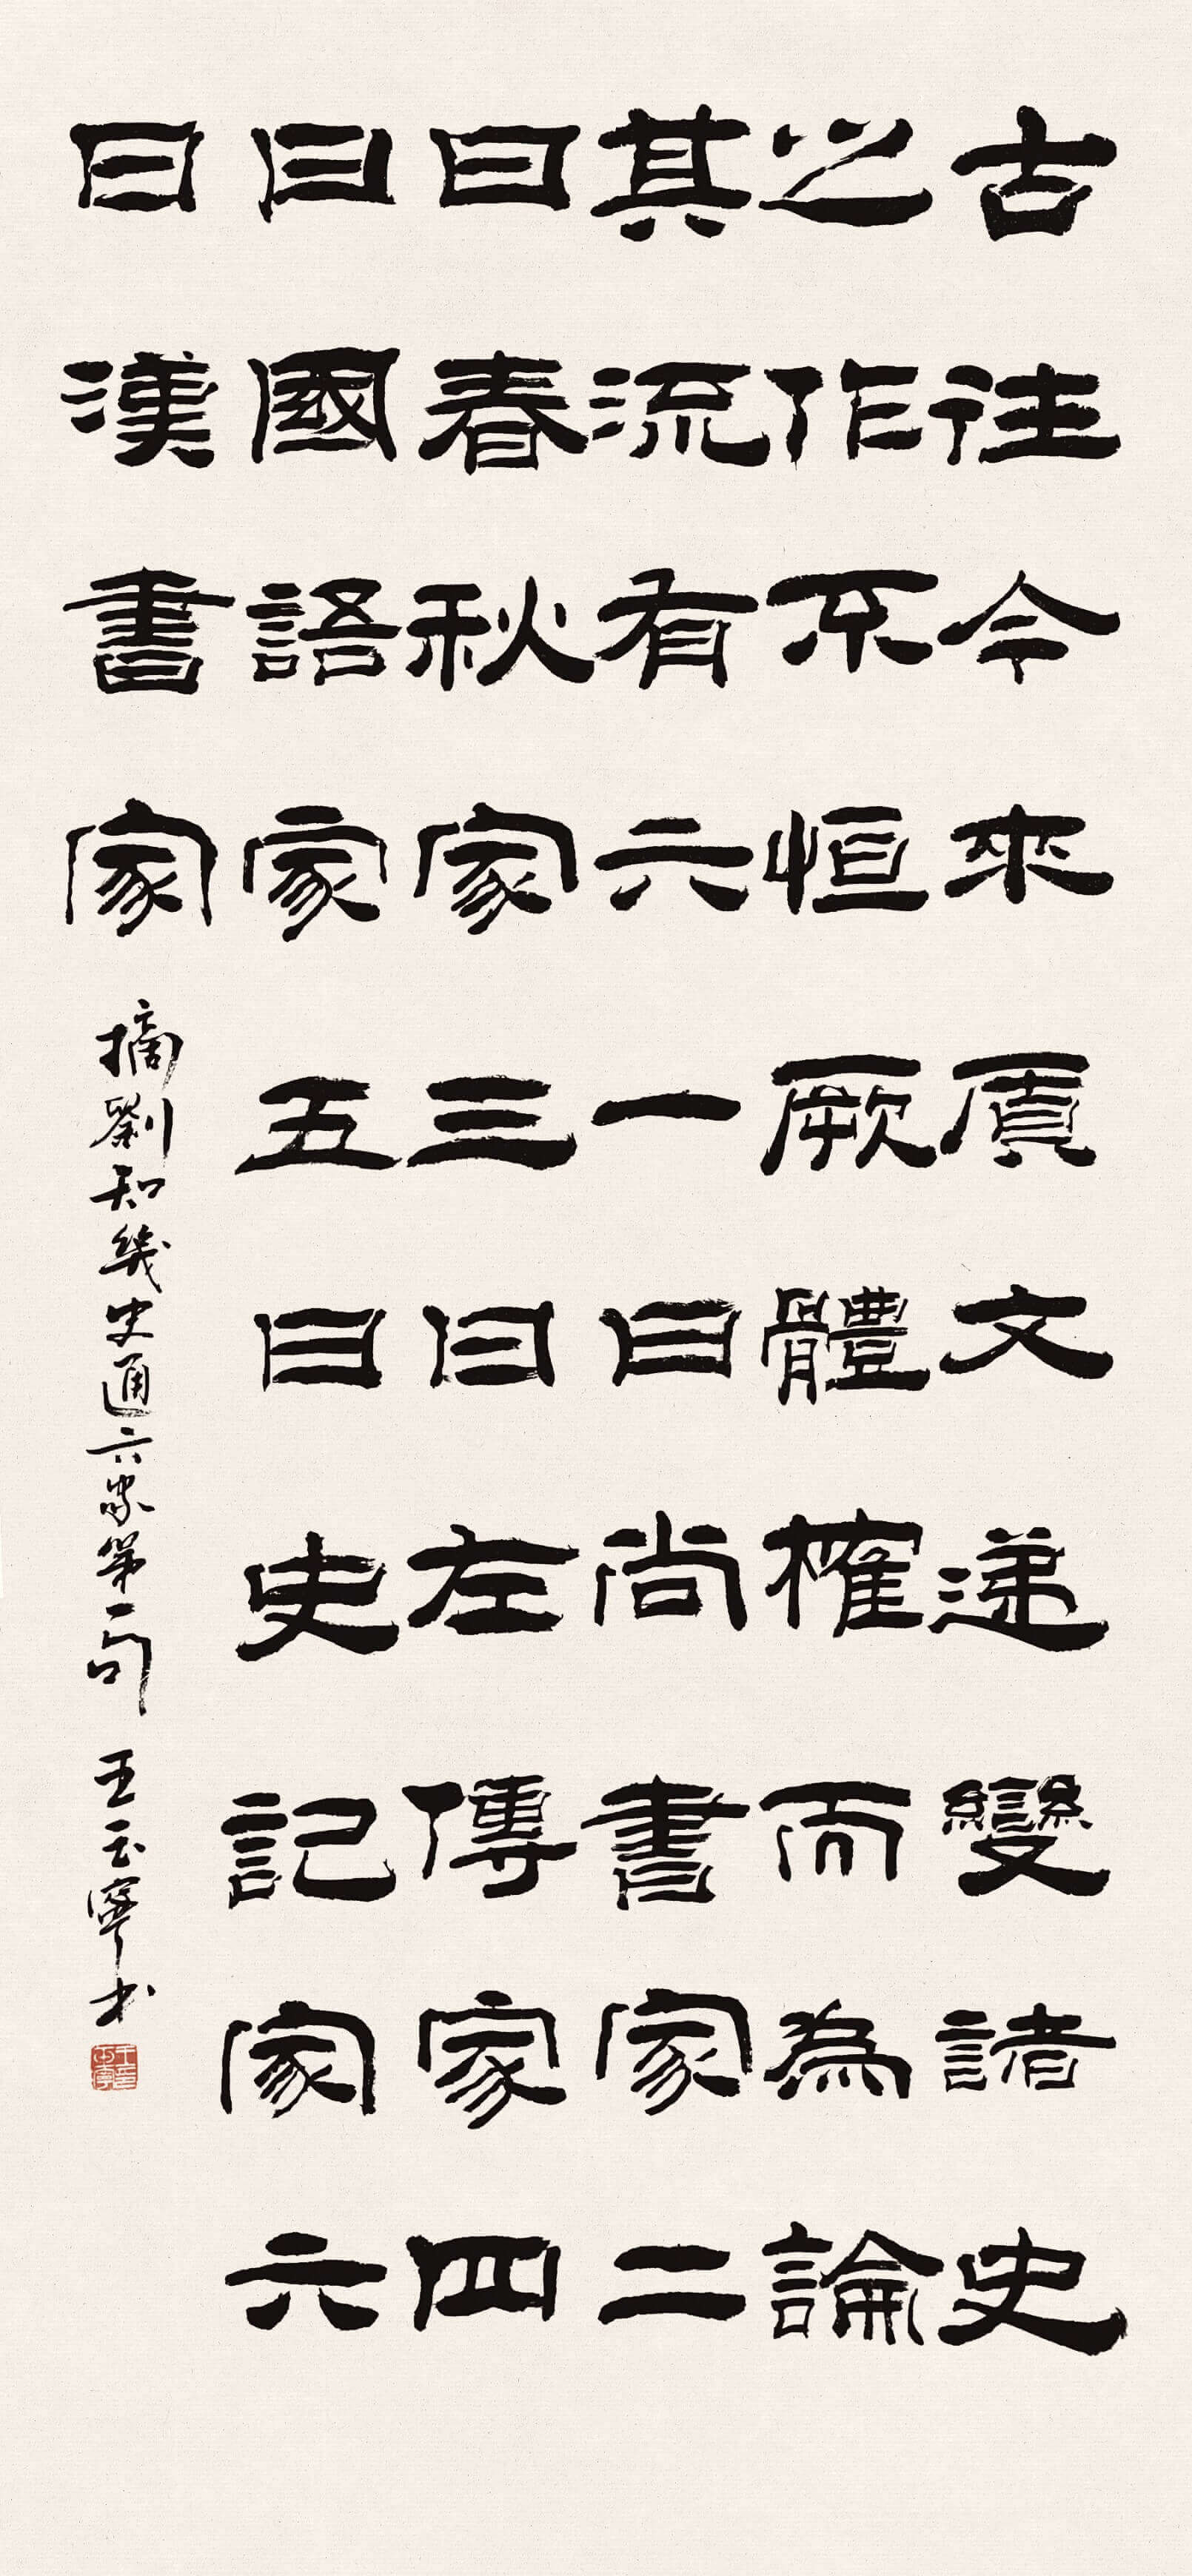 古往今來質文递變諸史
之作不恒厥體榷而為論
其流有六一曰尚書家二
曰春秋家三曰左傳家四
曰國語家五曰史記家六
曰漢書家
摘劉知幾史通六家第一句 王玉寧书